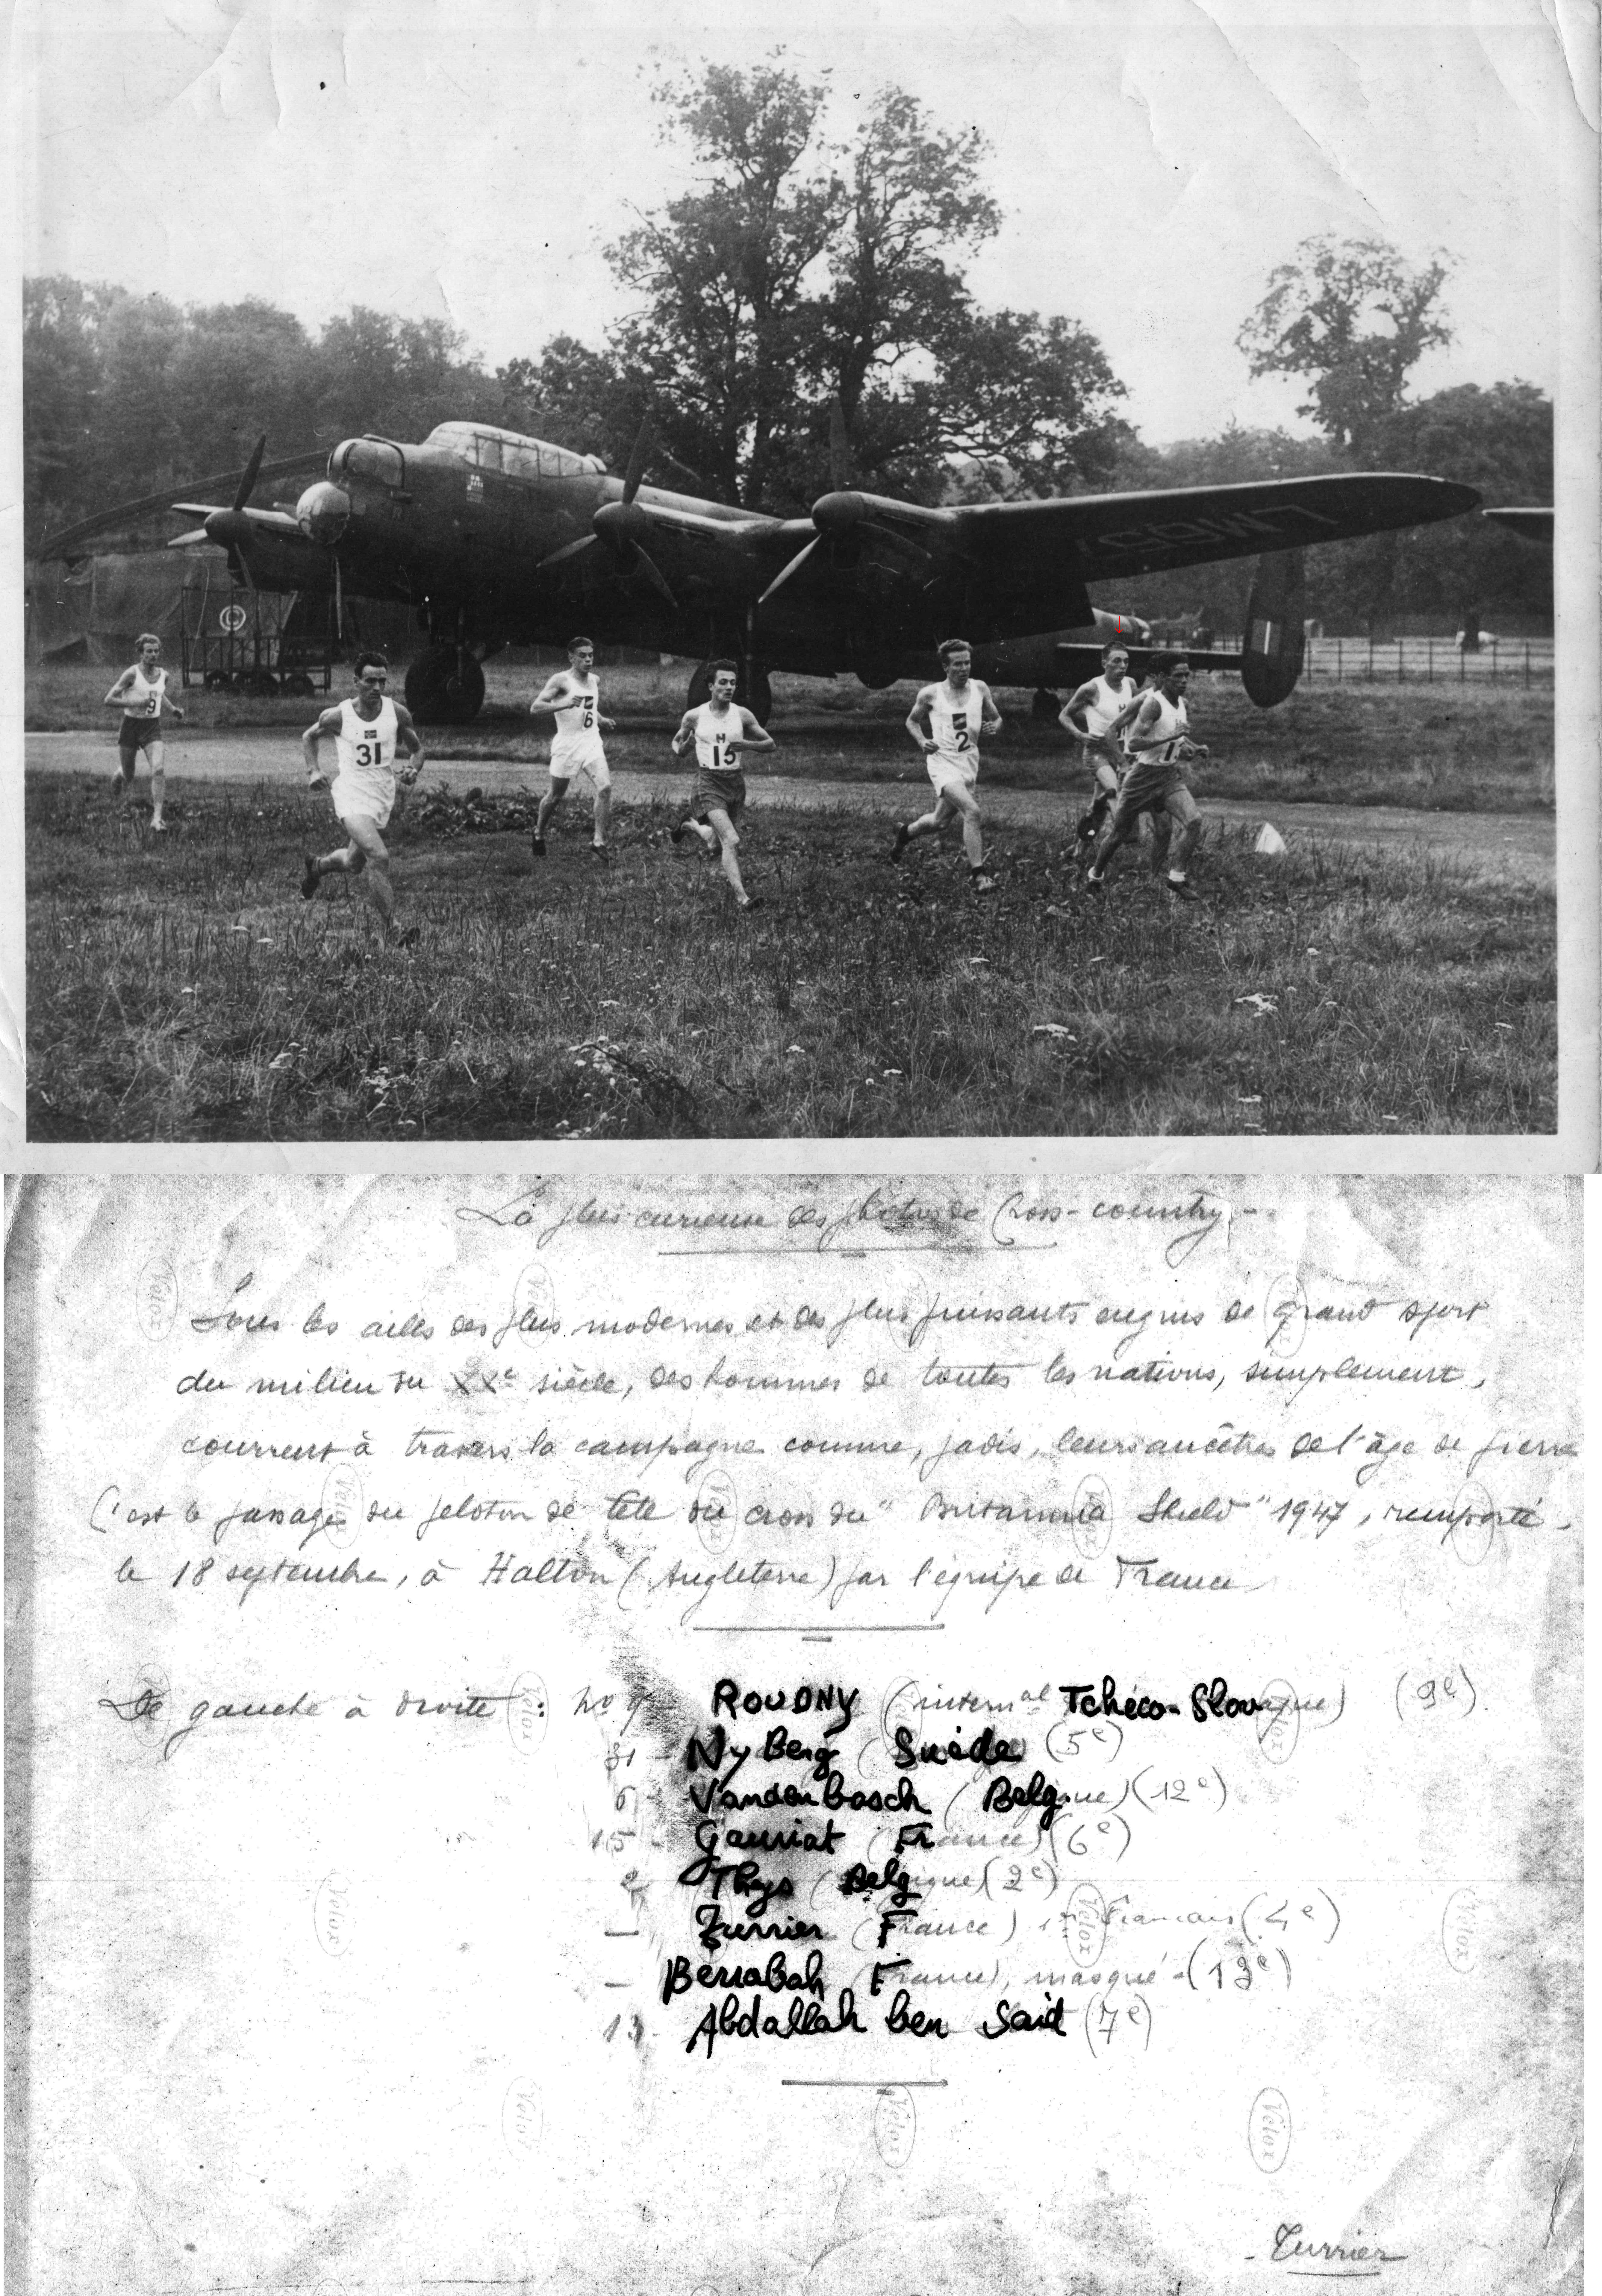 LM657
C
9
31
6
H
15
2
H
1
La plus curieuse des photos de Cross-country.-
Sous les ailes des plus modernes et des plus puissants engins de grand sport
du milieu du XXe siècle, des hommes de toutes les nations, simplement,
courent à travers la campagne comme, jadis, leurs ancêtres de l'âge de pierre
C'est le passage du peloton de tête du cross du "Britannia Shield" 1947, remporté,
le 18 septembre, à Halton (Angleterre) par l'équipe de France
De gauche à droite : No 9 - ROUDNY (internal Tchéco-Slovaque) (9e).
31 - NyBerg (Suède) (5e)
6 - Vandenbosch (Belgique) (12e)
15 - Gauriat (France) (6e)
2 Thys (Belgique) (2e)
— Zurrier (France) 1er Français (4e)
— Berrabah (France), masqué - (13e)
Abdallah ben Said (7e)
Velox
Velox
Velox
Velox
Velox
Velox
Velox
Velox
Velox
Velox
Velox